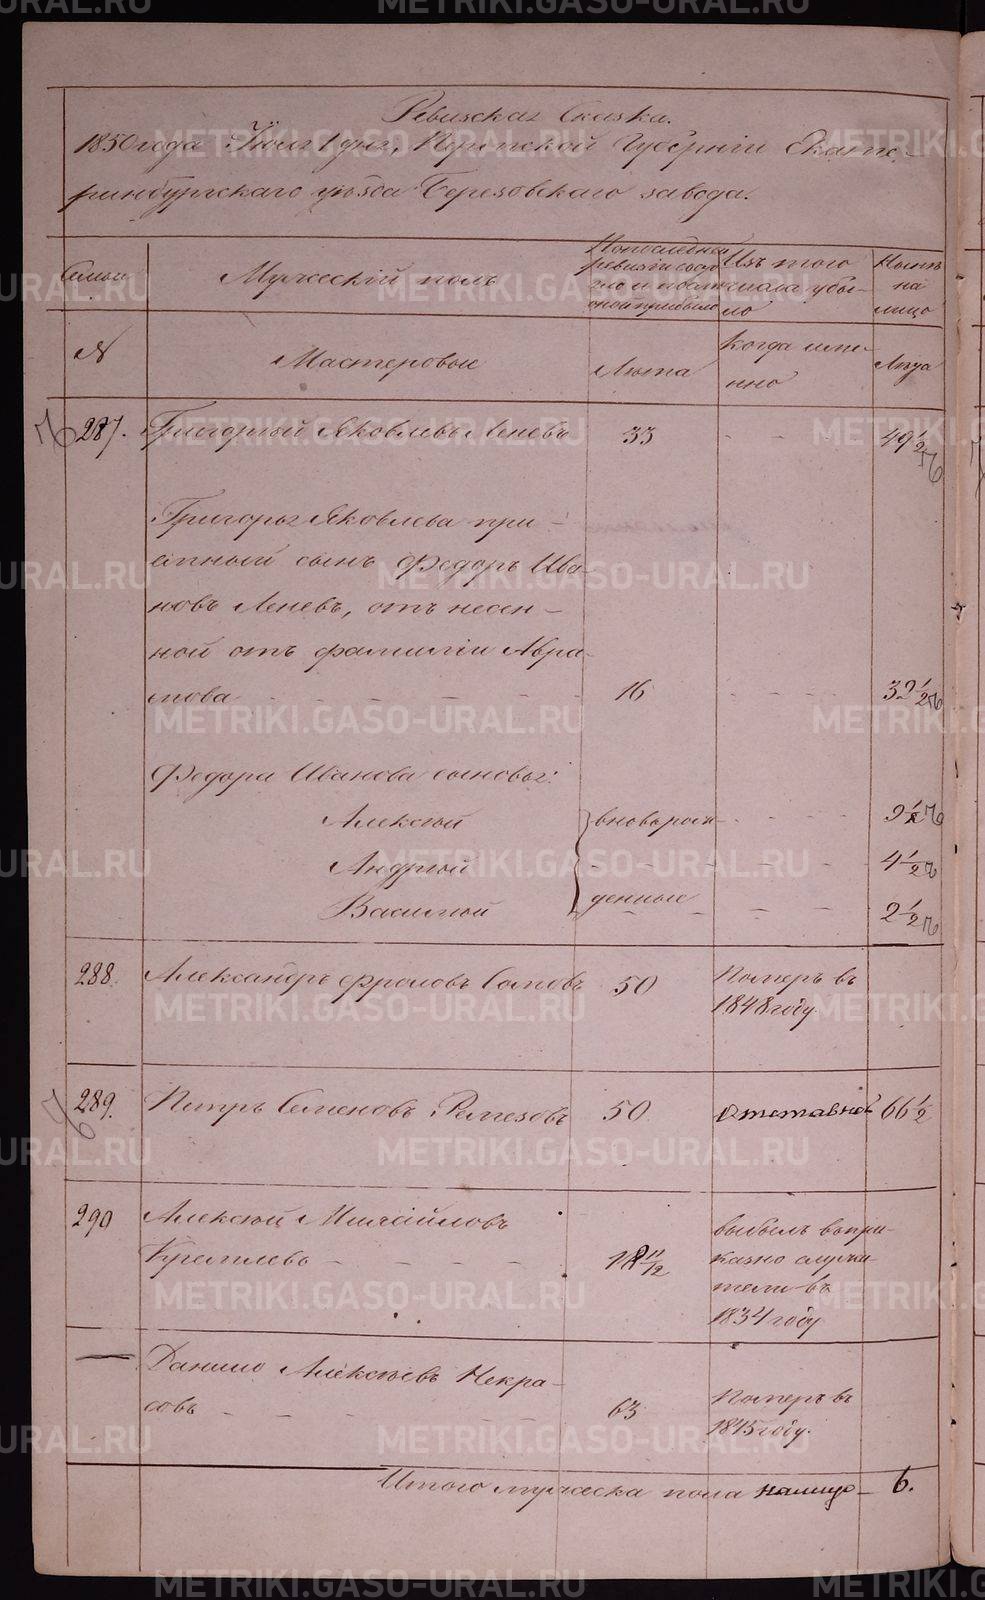 Ревизская Сказка.
1850 года Июля 1 дня, Пермской Губернiи Екате-
ринбургскаго уѣзда Березовскаго завода.
Семьи
Мужескiй полъ
По последней ревизiи состо-
яло и после
оной прибыло
Изъ того
числа убы-
ло
Нынѣ
на
лицо
N
Мастеровыи
Лѣта
Когда имя-
нно
Лѣта
287. Григорiй Яковлевъ Леневъ 33 - - 49 1/2
Григорья Яковлева при-
емный сынъ Федоръ Ива-
новъ Леневъ, отъ несен-
ной отъ фамилiи Авра-
мова 16 - - - 32 1/2
Федора Иванова сыновья:
Алексѣй вновь рож- 9 1/2
Андрей 4 1/2
денные
Василiй 2 1/2
288. Александръ Фроловъ Сомовъ 50 Померъ въ
1848 году
289. Петръ Семеновъ Ремезовъ 50 Отставной 66 1/2
290 Алексѣй Михайловъ
Кремлевъ 18 11/12
выбылъ въ при-
казно служи-
тели въ
1834 году
Данило Алексѣевъ Некра-
совъ 63
Померъ въ
1845 году.
Итого мужеска пола налицо 6.
METRIKI.GASO-URAL.RU